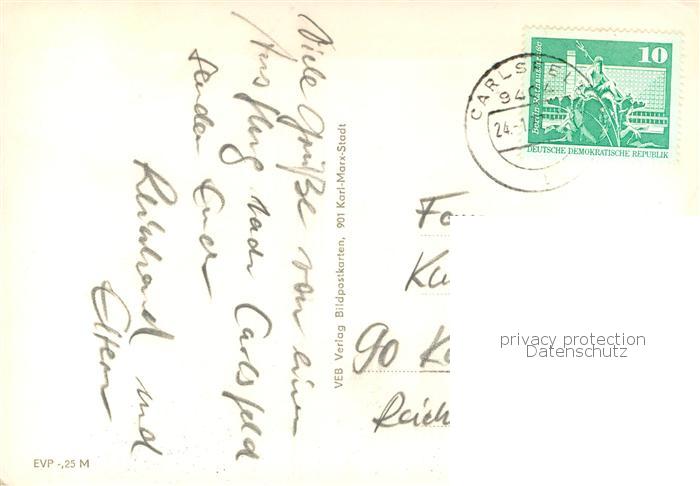 Viele Grüße von einem
Ausflug nach Carlsfeld
senden Euch
Reinhard und
Eltern
VEB Verlag Bildpostkarten, 901 Karl-Marx-Stadt
EVP -,25 M
CARLSFELD
24.
10
Berlin-Rathausstraße
DEUTSCHE DEMOKRATISCHE REPUBLIK
90 K
Reich
privacy protection
Datenschutz